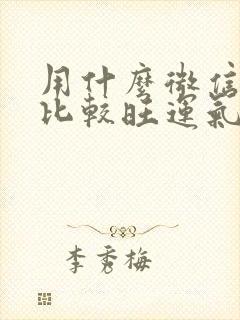 用什麼微信
比較旺運氣
李秀梅